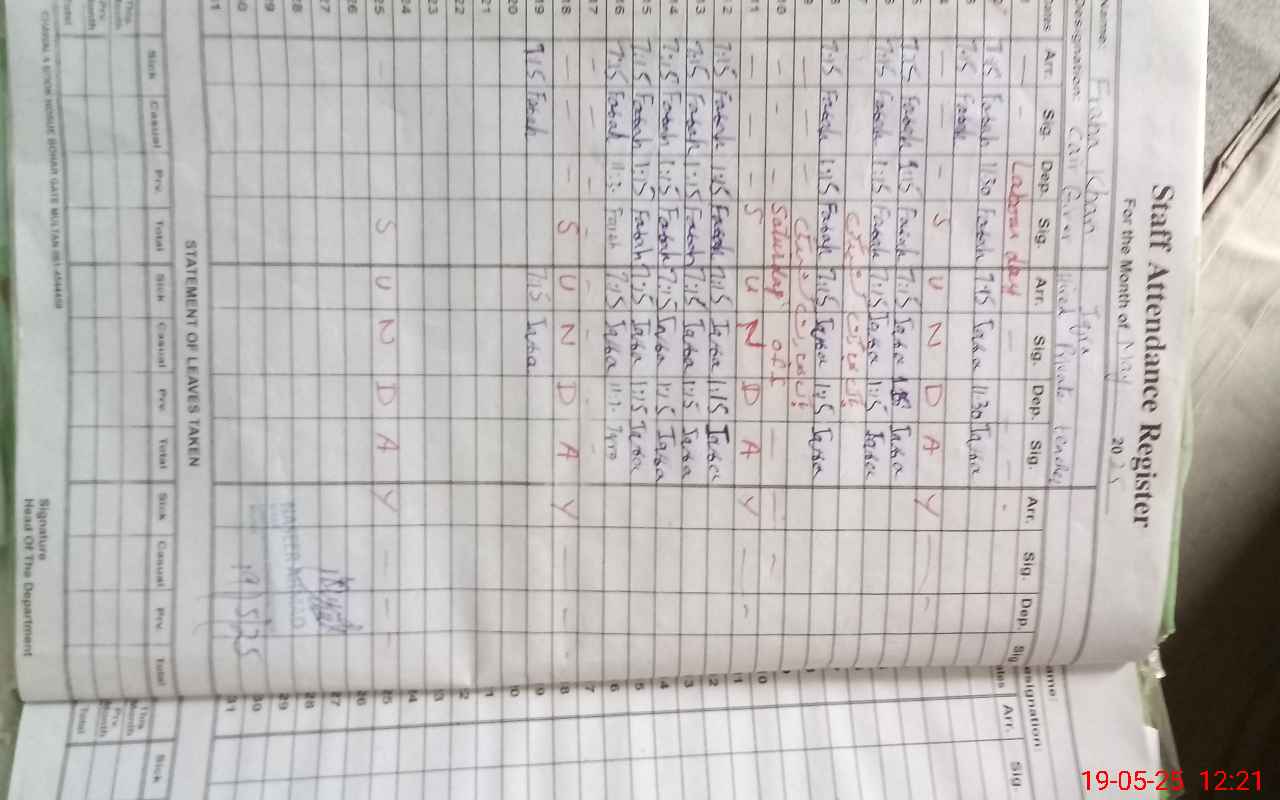 Staff Attendance Register
For the Month of May 2025
Name: Farah Khan Iqra
Designation: Care Giver Hired Private teacher
Dates Arr. Sig. Dep. Sig. Arr. Sig. Dep. Sig. Arr. Sig. Dep. Sig
1 — - Labour day — - - -
2 7:15 Farah 11:30 Farah 7:15 Iqra 11:30 Iqra
3 7:15 Farah
4 — — - S U N D A Y — -
5 7:15 Farah 1:15 Farah 7:15 Iqra Iqra
6 7:15 Farah 1:15 Farah 7:15 Iqra 1:15 Iqra
7
8 7:15 Farah 1:15 Farah 7:15 Iqra 1:15 Iqra
9 — —
10 — - - Saturday off — — -
11 — - — S U N D A Y — -
12 7:15 Farah 1:15 Farah 7:15 Iqra 1:15 Iqra
13 7:15 Farah 1:15 Farah 7:15 Iqra 1:15 Iqra
14 7:15 Farah 1:15 Farah 7:15 Iqra 1:15 Iqra
15 7:15 Farah 1:15 Farah 7:15 Iqra 1:15 Iqra
16 7:15 Farah 11:3 Farah 7:15 Iqra 11:3 Iqra
17 - - - - - - -
18 — — — S U N D A Y — —
19 7:15 Farah 7:15 Iqra
20
21
22
23
24
25 — S U N D A Y — — —
26
27
28
29
30
31
19/5/25
STATEMENT OF LEAVES TAKEN
Sick Casual Prv. Total Sick Casual Prv. Total Sick Casual Prv. Total
This Month
Prv. Month
Total
Signature
Head Of The Department
CHAWLA BOOK HOUSE BOHAR GATE MULTAN
Name:
Designation:
Dates Arr. Sig.
10
11
12
13
14
15
16
17
18
19
20
21
22
23
24
25
26
27
28
29
30
31
This Month
Prv. Month
Total
Sick
19-05-25 12:21